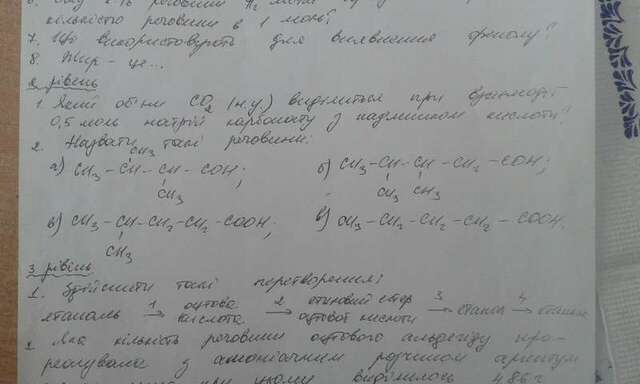 кількістю речовини в 1 моль?
7. Що використовують для виявлення фенолу?
8. Жир - це...
2 рівень
1. Який об'єм CO2 (н.у.) виділиться при взаємодії
0,5 моль натрій карбонату з надлишком кислоти?
2. Назвати такі речовини:
CH3
а) CH3 - CH - CH - COH;
CH3
б) CH3 - CH - CH - CH2 - COH;
CH3 CH3
в) CH3 - CH - CH2 - CH2 - COOH;
CH3
г) CH3 - CH2 - CH2 - CH2 - COOH.
3 рівень
1. Здійснити такі перетворення:
етаналь 1→ оцтова кислота 2→ етиловий естер оцтової кислоти 3→ етанол 4→
2. Яка кількість речовини оцтового альдегіду про-
реагувала з амоніачним розчином аргентум
при цьому виділилось 4,86 г